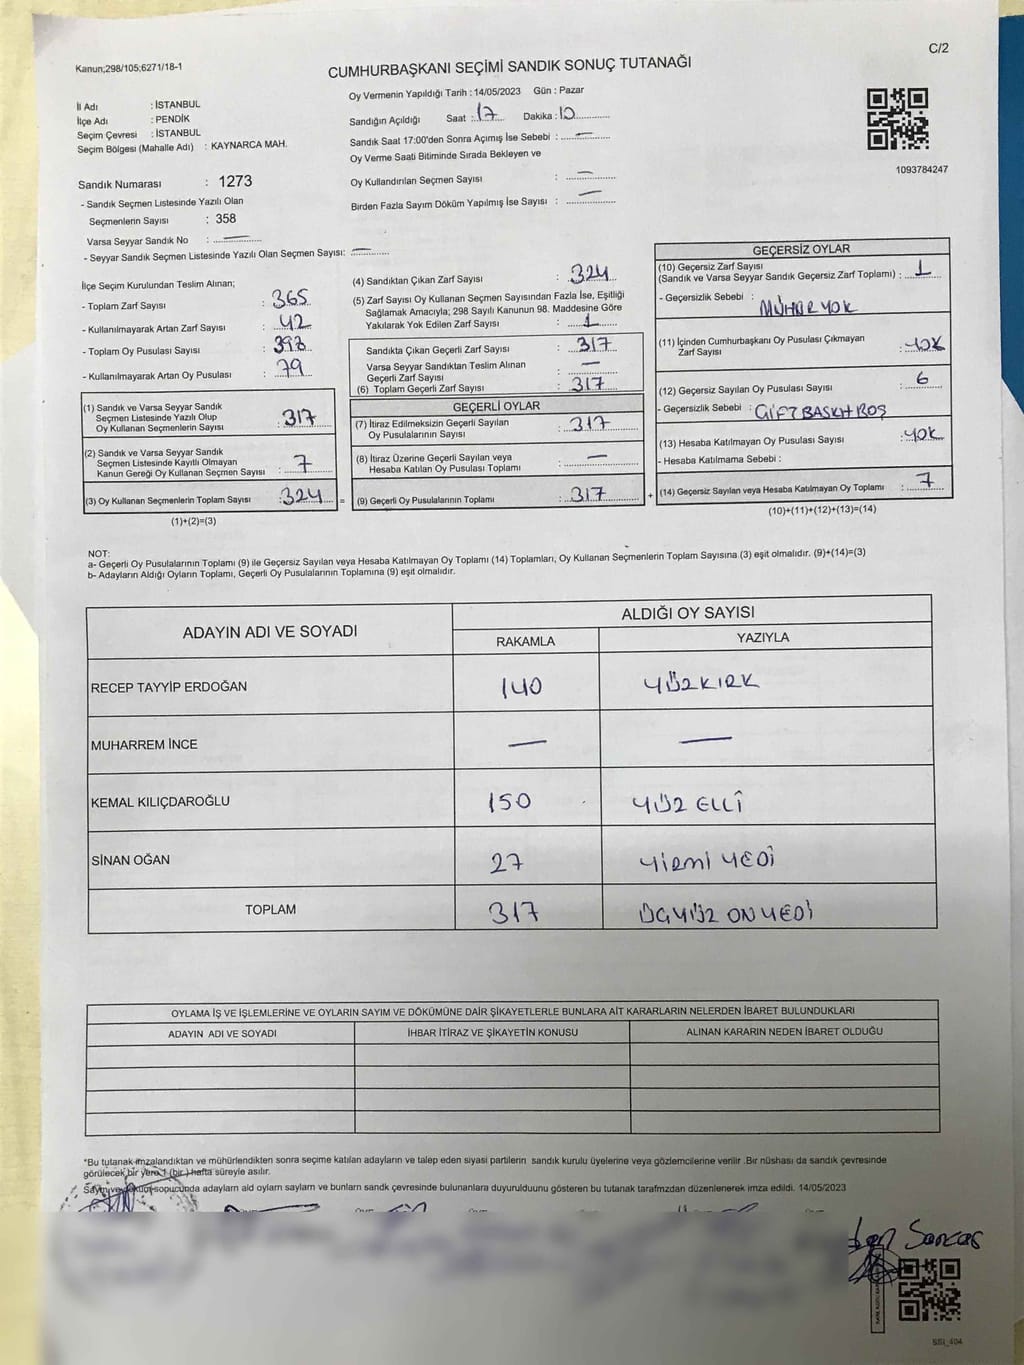 C/2
Kanun;298/105;6271/18-1
CUMHURBAŞKANI SEÇİMİ SANDIK SONUÇ TUTANAĞI
İl Adı : İSTANBUL
İlçe Adı : PENDİK
Seçim Çevresi : İSTANBUL
Seçim Bölgesi (Mahalle Adı) : KAYNARCA MAH.
Oy Vermenin Yapıldığı Tarih : 14/05/2023 Gün : Pazar
Sandığın Açıldığı Saat : 17 Dakika : 10
Sandık Saat 17:00'den Sonra Açımış İse Sebebi : —
Oy Verme Saati Bitiminde Sırada Bekleyen ve
Oy Kullandırılan Seçmen Sayısı : —
Birden Fazla Sayım Döküm Yapılmış İse Sayısı : —
1093784247
Sandık Numarası : 1273
- Sandık Seçmen Listesinde Yazılı Olan
Seçmenlerin Sayısı : 358
Varsa Seyyar Sandık No : —
- Seyyar Sandık Seçmen Listesinde Yazılı Olan Seçmen Sayısı: —
İlçe Seçim Kurulundan Teslim Alınan;
- Toplam Zarf Sayısı : 365
- Kullanılmayarak Artan Zarf Sayısı : 42
- Toplam Oy Pusulası Sayısı : 393
- Kullanılmayarak Artan Oy Pusulası : 79
(1) Sandık ve Varsa Seyyar Sandık
Seçmen Listesinde Yazılı Olup
Oy Kullanan Seçmenlerin Sayısı : 317
(2) Sandık ve Varsa Seyyar Sandık
Seçmen Listesinde Kayıtlı Olmayan
Kanun Gereği Oy Kullanan Seçmen Sayısı : 7
(3) Oy Kullanan Seçmenlerin Toplam Sayısı : 324 =
(1)+(2)=(3)
(4) Sandıktan Çıkan Zarf Sayısı : 324
(5) Zarf Sayısı Oy Kullanan Seçmen Sayısından Fazla İse, Eşitliği
Sağlamak Amacıyla; 298 Sayılı Kanunun 98. Maddesine Göre
Yakılarak Yok Edilen Zarf Sayısı : 1
Sandıkta Çıkan Geçerli Zarf Sayısı : 317
Varsa Seyyar Sandıktan Teslim Alınan
Geçerli Zarf Sayısı : —
(6) Toplam Geçerli Zarf Sayısı : 317
GEÇERLİ OYLAR
(7) İtiraz Edilmeksizin Geçerli Sayılan
Oy Pusulalarının Sayısı : 317
(8) İtiraz Üzerine Geçerli Sayılan veya
Hesaba Katılan Oy Pusulası Toplamı : —
(9) Geçerli Oy Pusulalarının Toplamı : 317 +
GEÇERSİZ OYLAR
(10) Geçersiz Zarf Sayısı
(Sandık ve Varsa Seyyar Sandık Geçersiz Zarf Toplamı) : 1
- Geçersizlik Sebebi : MÜHÜR YOK
(11) İçinden Cumhurbaşkanı Oy Pusulası Çıkmayan
Zarf Sayısı : YOK
(12) Geçersiz Sayılan Oy Pusulası Sayısı : 6
- Geçersizlik Sebebi : ÇİFT BASKI BOŞ
(13) Hesaba Katılmayan Oy Pusulası Sayısı : YOK
- Hesaba Katılmama Sebebi :
(14) Geçersiz Sayılan veya Hesaba Katılmayan Oy Toplamı : 7
(10)+(11)+(12)+(13)=(14)
NOT:
a- Geçerli Oy Pusulalarının Toplamı (9) ile Geçersiz Sayılan veya Hesaba Katılmayan Oy Toplamı (14) Toplamları, Oy Kullanan Seçmenlerin Toplam Sayısına (3) eşit olmalıdır. (9)+(14)=(3)
b- Adayların Aldığı Oyların Toplamı, Geçerli Oy Pusulalarının Toplamına (9) eşit olmalıdır.
ADAYIN ADI VE SOYADI ALDIĞI OY SAYISI
RAKAMLA YAZIYLA
RECEP TAYYİP ERDOĞAN 140 YÜZKIRK
MUHARREM İNCE — —
KEMAL KILIÇDAROĞLU 150 YÜZ ELLİ
SİNAN OĞAN 27 YİRMİ YEDİ
TOPLAM 317 ÜÇYÜZ ONYEDİ
OYLAMA İŞ VE İŞLEMLERİNE VE OYLARIN SAYIM VE DÖKÜMÜNE DAİR ŞİKAYETLERLE BUNLARA AİT KARARLARIN NELERDEN İBARET BULUNDUKLARI
ADAYIN ADI VE SOYADI İHBAR İTİRAZ VE ŞİKAYETİN KONUSU ALINAN KARARIN NEDEN İBARET OLDUĞU
*Bu tutanak imzalandıktan ve mühürlendikten sonra seçime katılan adayların ve talep eden siyasi partilerin sandık kurulu üyelerine veya gözlemcilerine verilir .Bir nüshası da sandık çevresinde
görülecek bir yere 1 (bir ) hafta süreyle asılır.
Sayım ve dökü sopucunda adayların ald oyların sayların ve bunların sandk çevresinde bulunanlara duyurulduunu gösteren bu tutanak tarafmzdan düzenlenerek imza edildi. 14/05/2023
Sancas
SSI_404